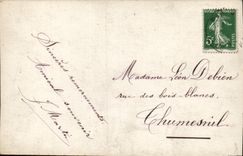 Sincères remerciements
Amical souvenir
J. Martin
5c
Madame Léon Debien
rue des bois-blancs,
Thumesnil